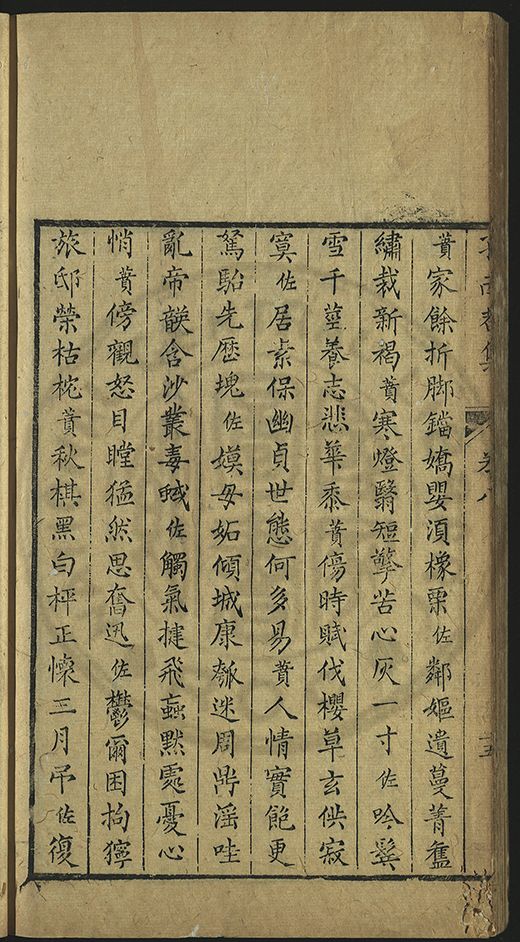 蕡家餘折脚鐺嬌嬰湏橡栗佐鄰嫗遺蔓菁舊
繡裁新褐蕡寒燈翳短檠苦心灰一寸佐吟鬂
雪千莖養志悲華黍蕡傷時賦伐櫻草玄供寂
寞佐居素保幽貞世態何多易蕡人情實飽更
駑駘先歴塊佐嫫母妬傾城康瓠迷周鼎滛哇
亂帝韺含沙叢毒蜮佐觸氣揵飛蝱默䖏憂心
悄蕡傍觀怒目瞠猛然思奮迅佐鬱爾困拘獰
旅邸榮枯枕蕡秋棋黑白枰正懐三月吊佐復